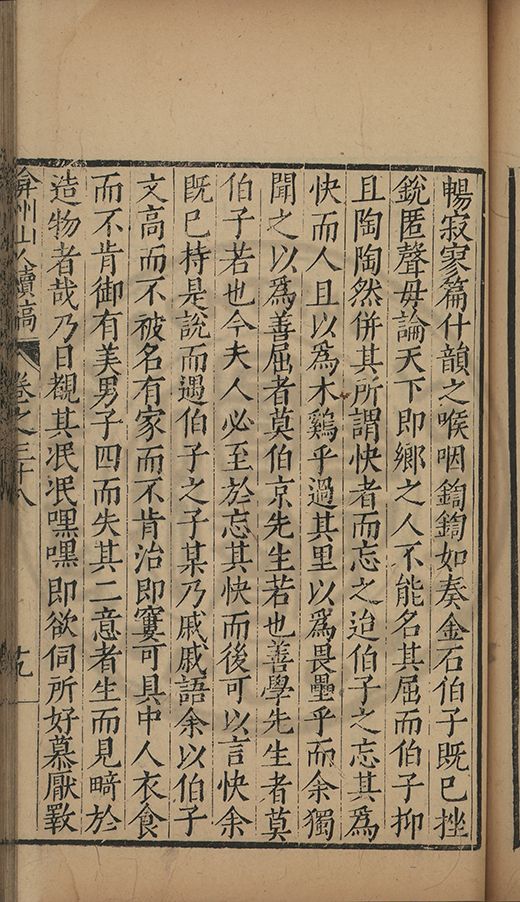 暢寂寥篇什韻之喉咽鍧鍧如奏金石伯子既已挫
銳匿聲毋論天下即鄉之人不能名其屈而伯子抑
且陶陶然併其所謂快者而忘之迨伯子之忘其為
快而人且以為木鷄乎過其里以為畏壘乎而余獨
聞之以為善屈者莫伯京先生若也善學先生者莫
伯子若也今夫人必至於忘其快而後可以言快余
既已持是說而遇伯子之子某乃戚戚語余以伯子
文高而不被名有家而不肯治即窶可具中人衣食
而不肯御有美男子四而失其二意者生而見畸於
造物者哉乃日覩其泯泯嘿嘿即欲伺所好慕厭斁
弇州山人續稿 卷之三十八 十九